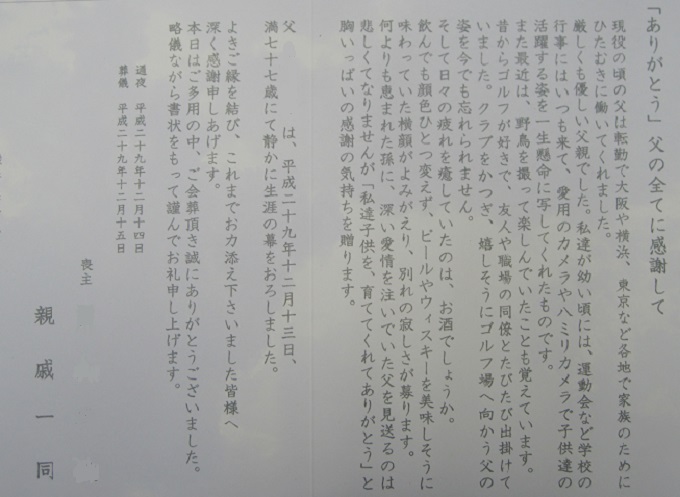 「ありがとう」父の全てに感謝して
現役の頃の父は転勤で大阪や横浜、東京など各地で家族のために
ひたむきに働いてくれました。
厳しくも優しい父親でした。私達が幼い頃には、運動会など学校の
行事にはいつも来て、愛用のカメラや八ミリカメラで子供達の
活躍する姿を一生懸命に写してくれたものです。
また最近は、野鳥を撮って楽しんでいたことも覚えています。
昔からゴルフが好きで、友人や職場の同僚とたびたび出掛けて
いました。クラブをかつぎ、嬉しそうにゴルフ場へ向かう父の
姿を今でも忘れられません。
そして日々の疲れを癒していたのは、お酒でしょうか。
飲んでも顔色ひとつ変えず、ビールやウィスキーを美味しそうに
味わっていた横顔がよみがえり、別れの寂しさが募ります。
何よりも恵まれた孫に、深い愛情を注いでいた父を見送るのは
悲しくてなりませんが「私達子供を、育ててくれてありがとう」と
胸いっぱいの感謝の気持ちを贈ります。
父 は、平成二十九年十二月十三日、
満七十七歳にて静かに生涯の幕をおろしました。
よきご縁を結び、これまでお力添え下さいました皆様へ
深く感謝申しあげます。
本日はご多用の中、ご会葬頂き誠にありがとうございました。
略儀ながら書状をもって謹んでお礼申し上げます。
通夜 平成二十九年十二月十四日
葬儀 平成二十九年十二月十五日
喪主
親戚一同